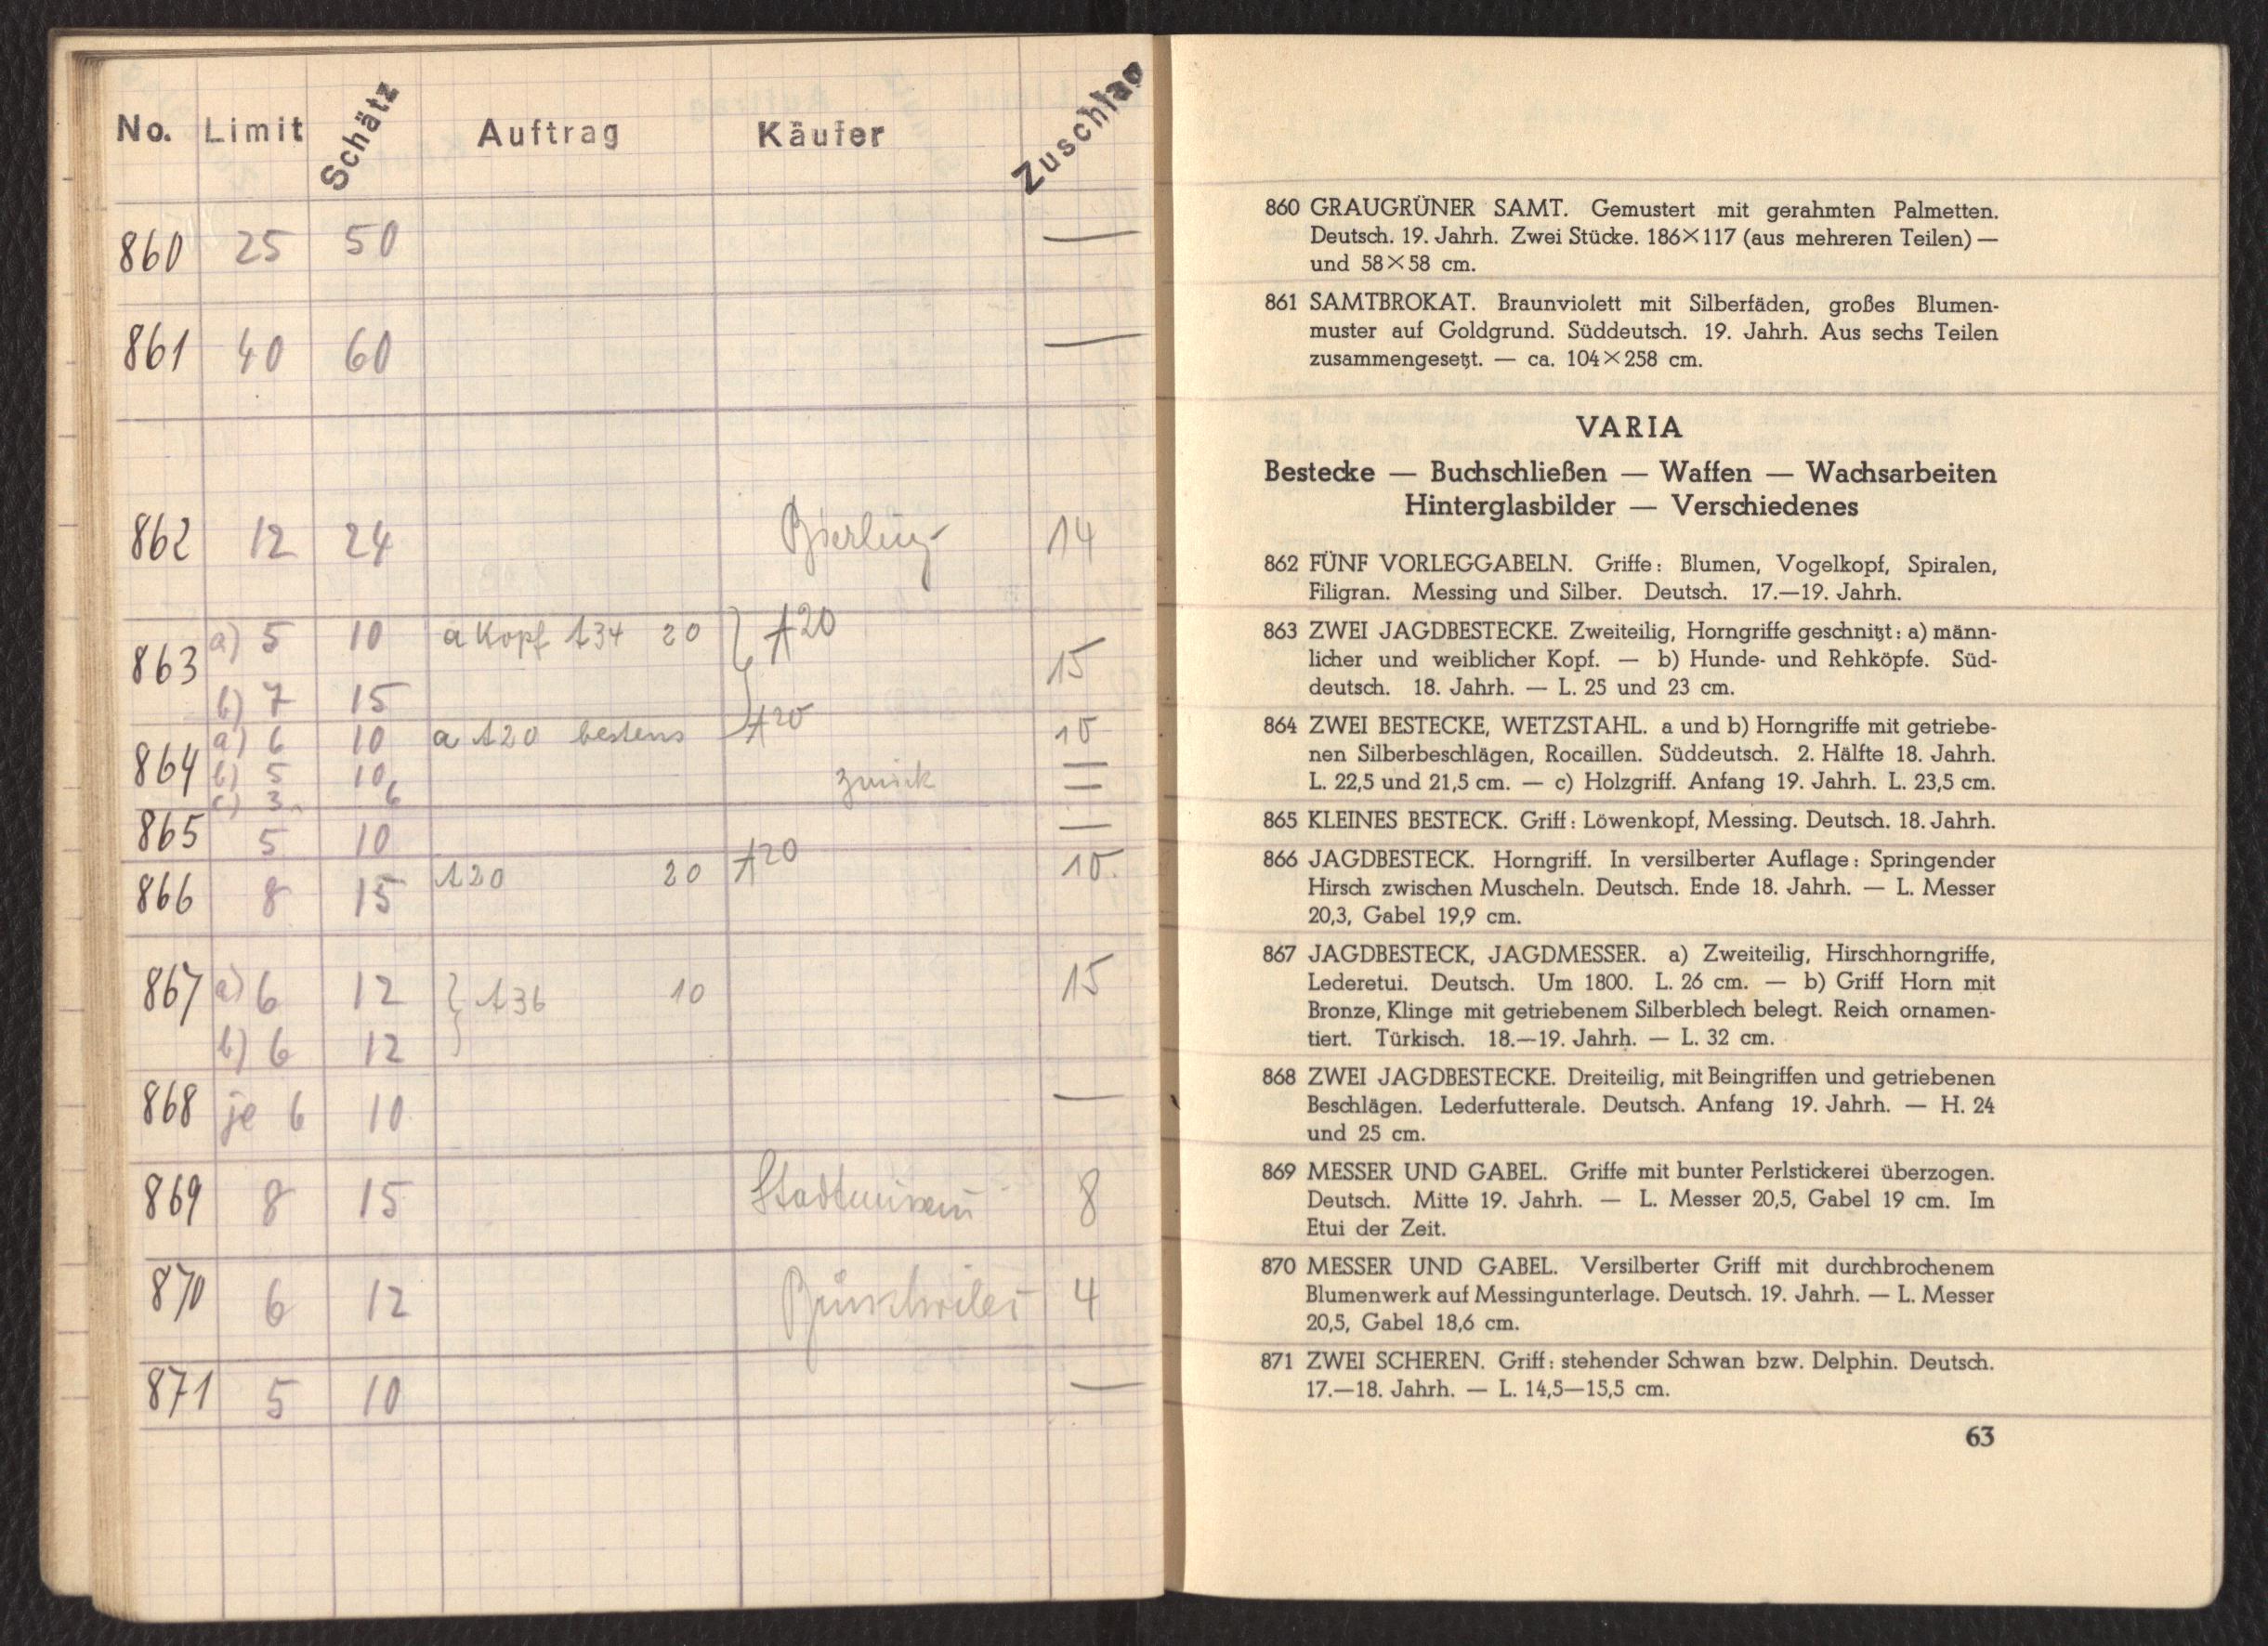 No. Limit Schätz Auftrag Käufer Zuschlag
860 25 50 —
861 40 60 —
862 12 24 14
863 a) 5 10 a Kopf A34 20 A20
b) 7 15 15
864 a) 6 10 a A20 bestens A20 10
b) 5 10 zurück —
c) 3 6 —
865 5 10 —
866 8 15 A20 20 A20 10
867 a) 6 12 A36 10 15
b) 6 12
868 je 6 10 —
869 8 15 Stadtmuseum 8
870 6 12 4
871 5 10 —
860 GRAUGRÜNER SAMT. Gemustert mit gerahmten Palmetten.
Deutsch. 19. Jahrh. Zwei Stücke. 186×117 (aus mehreren Teilen) —
und 58×58 cm.
861 SAMTBROKAT. Braunviolett mit Silberfäden, großes Blumen-
muster auf Goldgrund. Süddeutsch. 19. Jahrh. Aus sechs Teilen
zusammengesetzt. — ca. 104×258 cm.
VARIA
Bestecke — Buchschließen — Waffen — Wachsarbeiten
Hinterglasbilder — Verschiedenes
862 FÜNF VORLEGGABELN. Griffe: Blumen, Vogelkopf, Spiralen,
Filigran. Messing und Silber. Deutsch. 17.—19. Jahrh.
863 ZWEI JAGDBESTECKE. Zweiteilig, Horngriffe geschnitzt: a) männ-
licher und weiblicher Kopf. — b) Hunde- und Rehköpfe. Süd-
deutsch. 18. Jahrh. — L. 25 und 23 cm.
864 ZWEI BESTECKE, WETZSTAHL. a und b) Horngriffe mit getriebe-
nen Silberbeschlägen, Rocaillen. Süddeutsch. 2. Hälfte 18. Jahrh.
L. 22,5 und 21,5 cm. — c) Holzgriff. Anfang 19. Jahrh. L. 23,5 cm.
865 KLEINES BESTECK. Griff: Löwenkopf, Messing. Deutsch. 18. Jahrh.
866 JAGDBESTECK. Horngriff. In versilberter Auflage: Springender
Hirsch zwischen Muscheln. Deutsch. Ende 18. Jahrh. — L. Messer
20,3, Gabel 19,9 cm.
867 JAGDBESTECK, JAGDMESSER. a) Zweiteilig, Hirschhorngriffe,
Lederetui. Deutsch. Um 1800. L. 26 cm. — b) Griff Horn mit
Bronze, Klinge mit getriebenem Silberblech belegt. Reich ornamen-
tiert. Türkisch. 18.—19. Jahrh. — L. 32 cm.
868 ZWEI JAGDBESTECKE. Dreiteilig, mit Beingriffen und getriebenen
Beschlägen. Lederfutterale. Deutsch. Anfang 19. Jahrh. — H. 24
und 25 cm.
869 MESSER UND GABEL. Griffe mit bunter Perlstickerei überzogen.
Deutsch. Mitte 19. Jahrh. — L. Messer 20,5, Gabel 19 cm. Im
Etui der Zeit.
870 MESSER UND GABEL. Versilberter Griff mit durchbrochenem
Blumenwerk auf Messingunterlage. Deutsch. 19. Jahrh. — L. Messer
20,5, Gabel 18,6 cm.
871 ZWEI SCHEREN. Griff: stehender Schwan bzw. Delphin. Deutsch.
17.—18. Jahrh. — L. 14,5—15,5 cm.
63